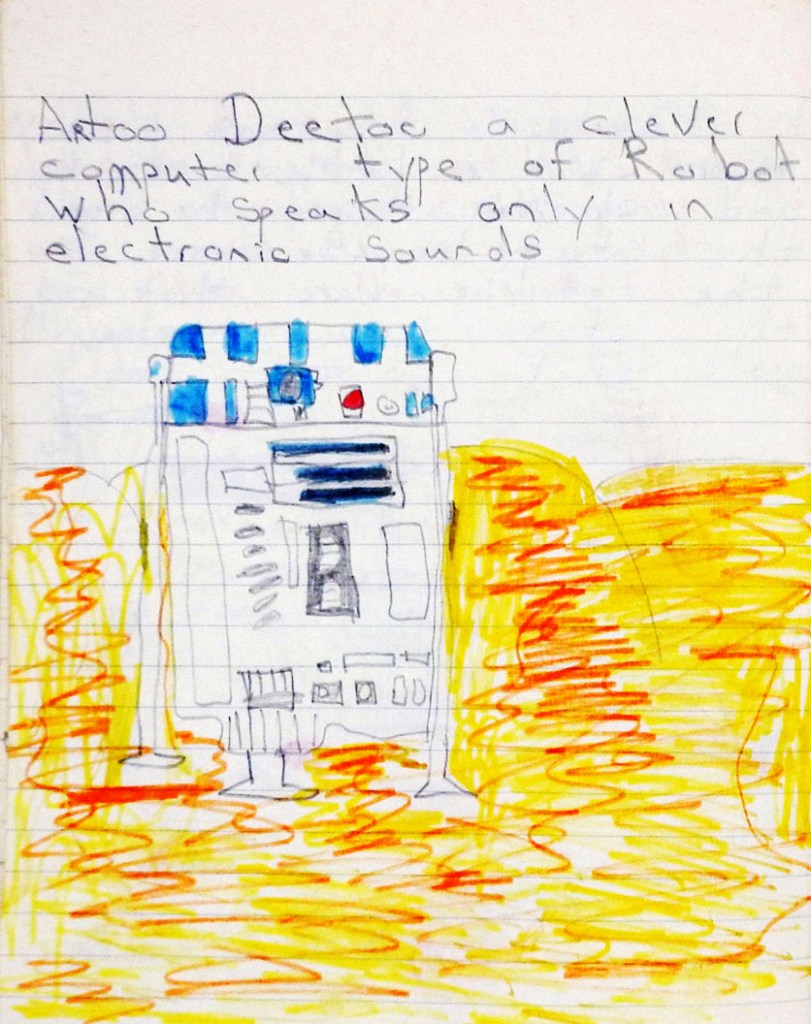 Artoo Deetoo a clever
computer type of Robot
who speaks only in
electronic sounds